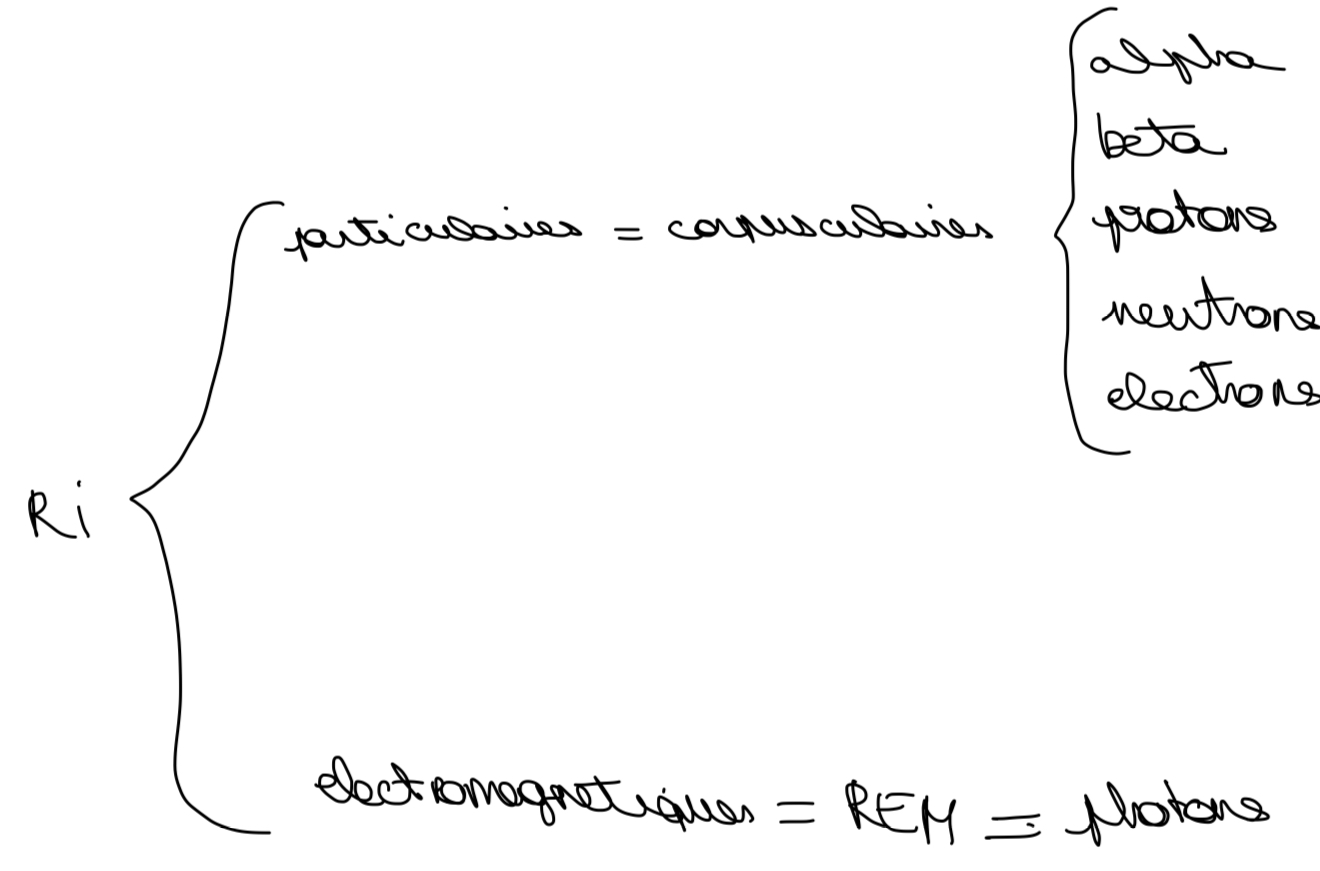 alpha
beta
particulaires = corpusculaires
protons
neutrons
electrons
Ri
electromagnetiques = REM = photons